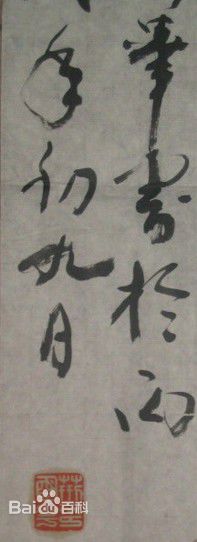 華書於丙
年初九月
Bai du 百科